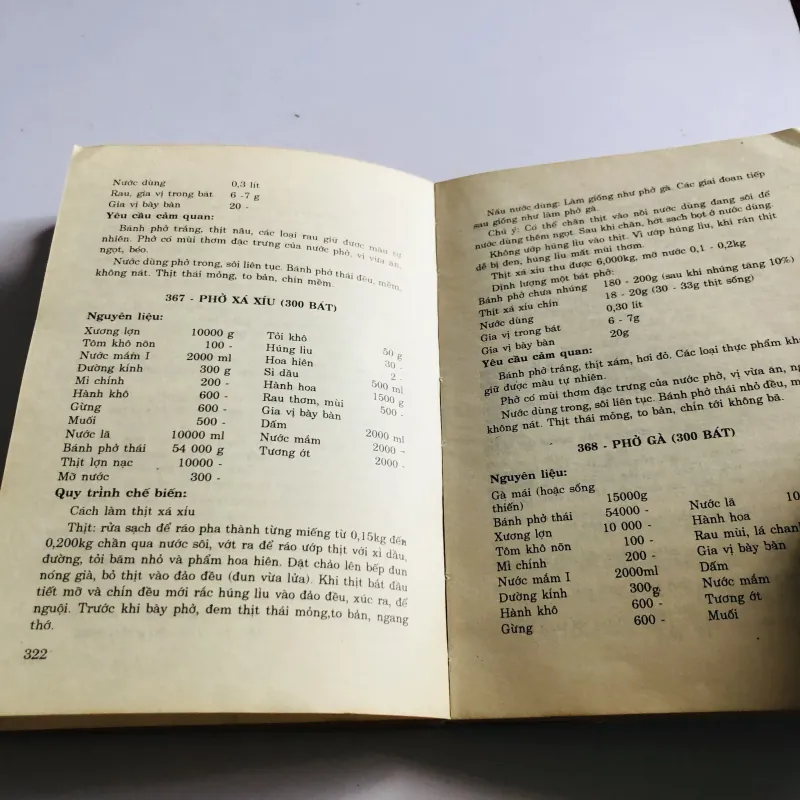 Nước dùng 0,3 lít
Rau, gia vị trong bát 6 -7 g
Gia vị bày bàn 20 -
Yêu cầu cảm quan:
Bánh phở trắng, thịt nâu, các loại rau giữ được màu tự
nhiên. Phở có mùi thơm đặc trưng của nước phở, vị vừa ăn,
ngọt, béo.
Nước dùng phở trong, sôi liên tục. Bánh phở thái đều, mềm,
không nát. Thịt thái mỏng, to bản, chín mềm.
367 - PHỞ XÁ XÍU (300 BÁT)
Nguyên liệu:
Xương lợn 10000 g Tỏi khô 50 g
Tôm khô nõn 100 - Húng lìu 30 -
Nước mắm I 2000 ml Hoa hiên 2 -
Đường kính 300 g Sì dầu 500 ml
Mì chính 200 - Hành hoa 1500 g
Hành khô 600 - Rau thơm, mùi 500 -
Gừng 600 - Gia vị bày bàn
Muối 500 - Dấm 2000 ml
Nước lã 10000 ml Nước mắm 2000 -
Bánh phở thái 54 000 g Tương ớt 2000 -
Thịt lợn nạc 10000 -
Mỡ nước 300 -
Quy trình chế biến:
Cách làm thịt xá xíu
Thịt: rửa sạch để ráo pha thành từng miếng từ 0,15kg đến
0,200kg chần qua nước sôi, vớt ra để ráo ướp thịt với xì dầu,
đường, tỏi băm nhỏ và phẩm hoa hiên. Đặt chảo lên bếp đun
nóng già, bỏ thịt vào đảo đều (đun vừa lửa). Khi thịt bắt đầu
tiết mỡ và chín đều mới rắc húng lìu vào đảo đều, xúc ra, để
nguội. Trước khi bày phở, đem thịt thái mỏng,to bản, ngang
thớ.
322
Nấu nước dùng: Làm giống như phở gà. Các giai đoạn tiếp
sau giống như làm phở gà.
Chú ý: Có thể chần thịt vào nồi nước dùng đang sôi để
nước dùng thêm ngọt. Sau khi chần, hớt sạch bọt ở nước dùng.
Không ướp húng lìu vào thịt. Vì ướp húng lìu, khi rán thịt
dễ bị đen, húng lìu mất mùi thơm.
Thịt xá xíu thu được 6,000kg, mỡ nước 0,1 - 0,2kg
Định lượng một bát phở:
Bánh phở chưa nhúng 180 - 200g (sau khi nhúng tăng 10%)
Thịt xá xíu chín 18 - 20g (30 - 33g thịt sống)
Nước dùng 0,30 lít
Gia vị trong bát 6 - 7g
Gia vị bày bàn 20g
Yêu cầu cảm quan:
Bánh phở trắng, thịt xám, hơi đỏ. Các loại thực phẩm
giữ được màu tự nhiên.
Phở có mùi thơm đặc trưng của nước phở, vị vừa ăn,
Nước dùng trong, sôi liên tục. Bánh phở thái nhỏ đều,
không nát. Thịt thái mỏng, to bản, chín tới không bã.
368 - PHỞ GÀ (300 BÁT)
Nguyên liệu:
Gà mái (hoặc sống
thiến) 15000g Nước lã
Bánh phở thái 54000 - Hành hoa
Xương lợn 10 000 - Rau mùi, lá chanh
Tôm khô nõn 100 - Gia vị bày bàn
Mì chính 200 - Dấm
Nước mắm I 2000ml Nước mắm
Đường kính 300g Tương ớt
Hành khô 600 - Muối
Gừng 600 -